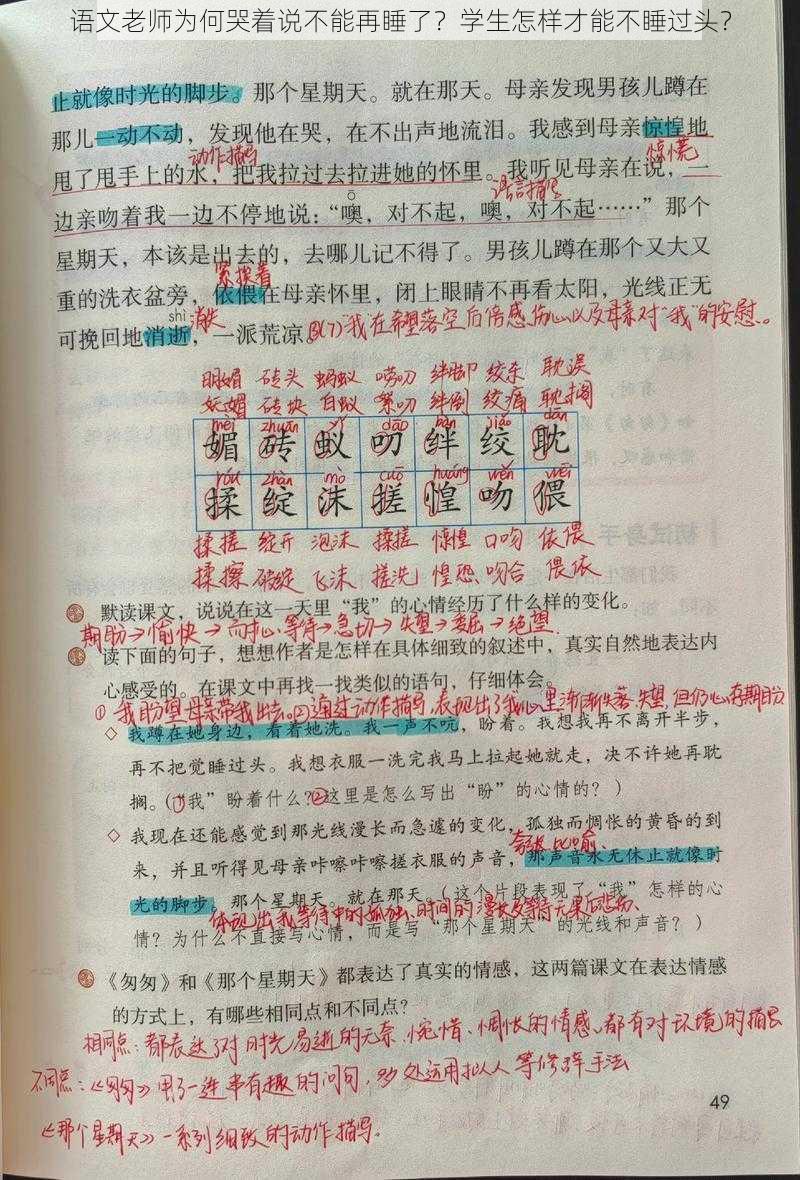 语文老师为何哭着说不能再睡了？学生怎样才能不睡过头？
止就像时光的脚步。那个星期天。就在那天。母亲发现男孩儿蹲在
那儿一动不动，发现他在哭，在不出声地流泪。我感到母亲惊惶地
动作描写
惊慌
甩了甩手上的水，把我拉过去拉进她的怀里。我听见母亲在说，一
语言描写
边亲吻着我一边不停地说：“噢，对不起，噢，对不起……”那个
星期天，本该是出去的，去哪儿记不得了。男孩儿蹲在那个又大又
紧挨着
重的洗衣盆旁，依偎在母亲怀里，闭上眼睛不再看太阳，光线正无
shì 消失
可挽回地消逝，一派荒凉。
(7)“我”在希望落空后倍感伤心以及母亲对“我”的安慰。
明媚 砖头 蚂蚁 唠叨 绊脚 绞杀 耽误
妩媚 砖块 白蚁 絮叨 绊倒 绞痛 耽搁
mèi zhuān yǐ dāo bàn jiǎo dān
媚 砖 蚁 叨 绊 绞 耽
róu zhàn mò cuō huáng wěn wēi
揉 绽 沫 搓 惶 吻 偎
揉搓 绽开 泡沫 揉搓 惊惶 口吻 依偎
揉擦 破绽 飞沫 搓洗 惶恐 吻合 偎依
默读课文，说说在这一天里“我”的心情经历了什么样的变化。
期盼→愉快→耐心等待→急切→失望→委屈→绝望
读下面的句子，想想作者是怎样在具体细致的叙述中，真实自然地表达内
心感受的。在课文中再找一找类似的语句，仔细体会。
①我盼望母亲带我出去。②通过动作描写，表现出了我心里渐渐失落、失望，但仍心存期盼
◇ 我蹲在她身边，看着她洗。我一声不吭，盼着。我想我再不离开半步，
再不把觉睡过头。我想衣服一洗完我马上拉起她就走，决不许她再耽
搁。（①“我”盼着什么？②这里是怎么写出“盼”的心情的？）
◇ 我现在还能感觉到那光线漫长而急遽的变化，孤独而惆怅的黄昏的到
比喻
来，并且听得见母亲咔嚓咔嚓搓衣服的声音，那声音永无休止就像时
光的脚步。那个星期天。就在那天。（这个片段表现了“我”怎样的心
体现出我等待中的孤独、时间的漫长及等待无果的悲伤、
情？为什么不直接写心情，而是写“那个星期天”的光线和声音？）
《匆匆》和《那个星期天》都表达了真实的情感，这两篇课文在表达情感
的方式上，有哪些相同点和不同点？
相同点：都表达了对时光易逝的无奈、惋惜、惆怅的情感、都有对环境的描写
不同点：《匆匆》用了一连串有趣的问句，多处运用拟人等修辞手法
《那个星期天》一系列细致的动作描写.
49